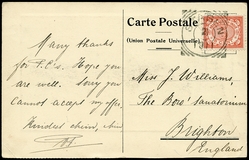 Carte Postale
(Union Postale Universelle)
Many thanks
for P.C's. Hope you
are well. Sorry you
cannot accept my offer.
Kindest
Miss J. Williams,
The Boro' Sanatorium
Brighton
England